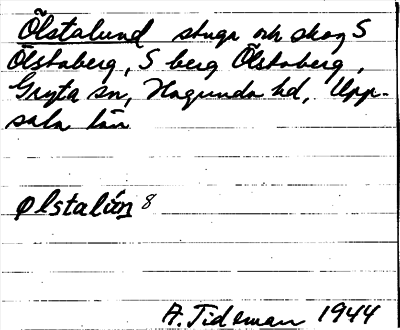 Ölstalund stuga och skog S
Ölstaberg, S berg Ölstaberg,
Gryta sn, Hagunda hd, Upp-
sala län
ølstalún 8
A. Tideman 1944